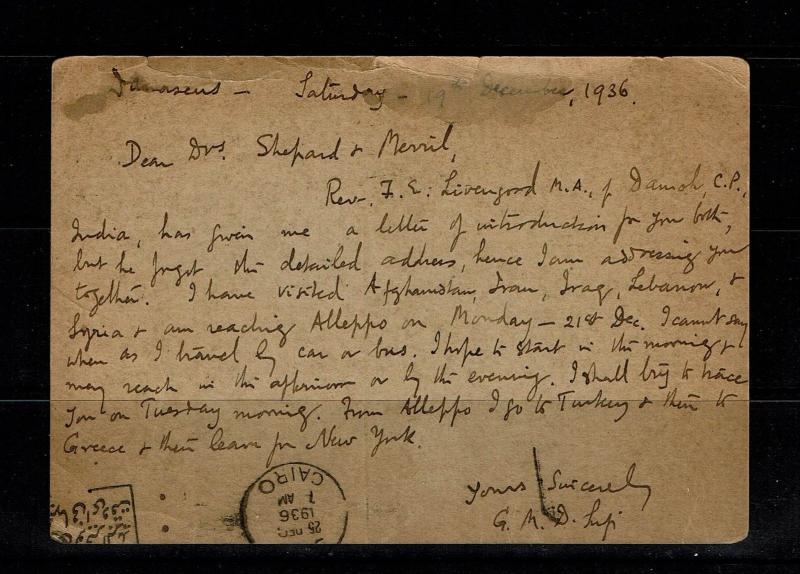 Damascus – Saturday – 19th December, 1936.
Dear Drs. Shepard & Merril,
Rev. F. E. Livengood M.A., of Damoh, C.P.,
India, has given me a letter of introduction for you both,
but he forgot the detailed address, hence I am addressing you
together. I have visited Afghanistan, Iran, Iraq, Lebanon, &
Syria & am reaching Alleppo on Monday – 21st Dec. I cannot say
when as I travel by car or bus. I hope to start in the morning &
may reach in the afternoon or by the evening. I shall try to trace
you on Tuesday morning. From Alleppo I go to Turkey & then to
Greece & then leave for New York.
Yours Sincerely
G. M. D. Sufi
CAIRO
7 AM
25 DEC
1936